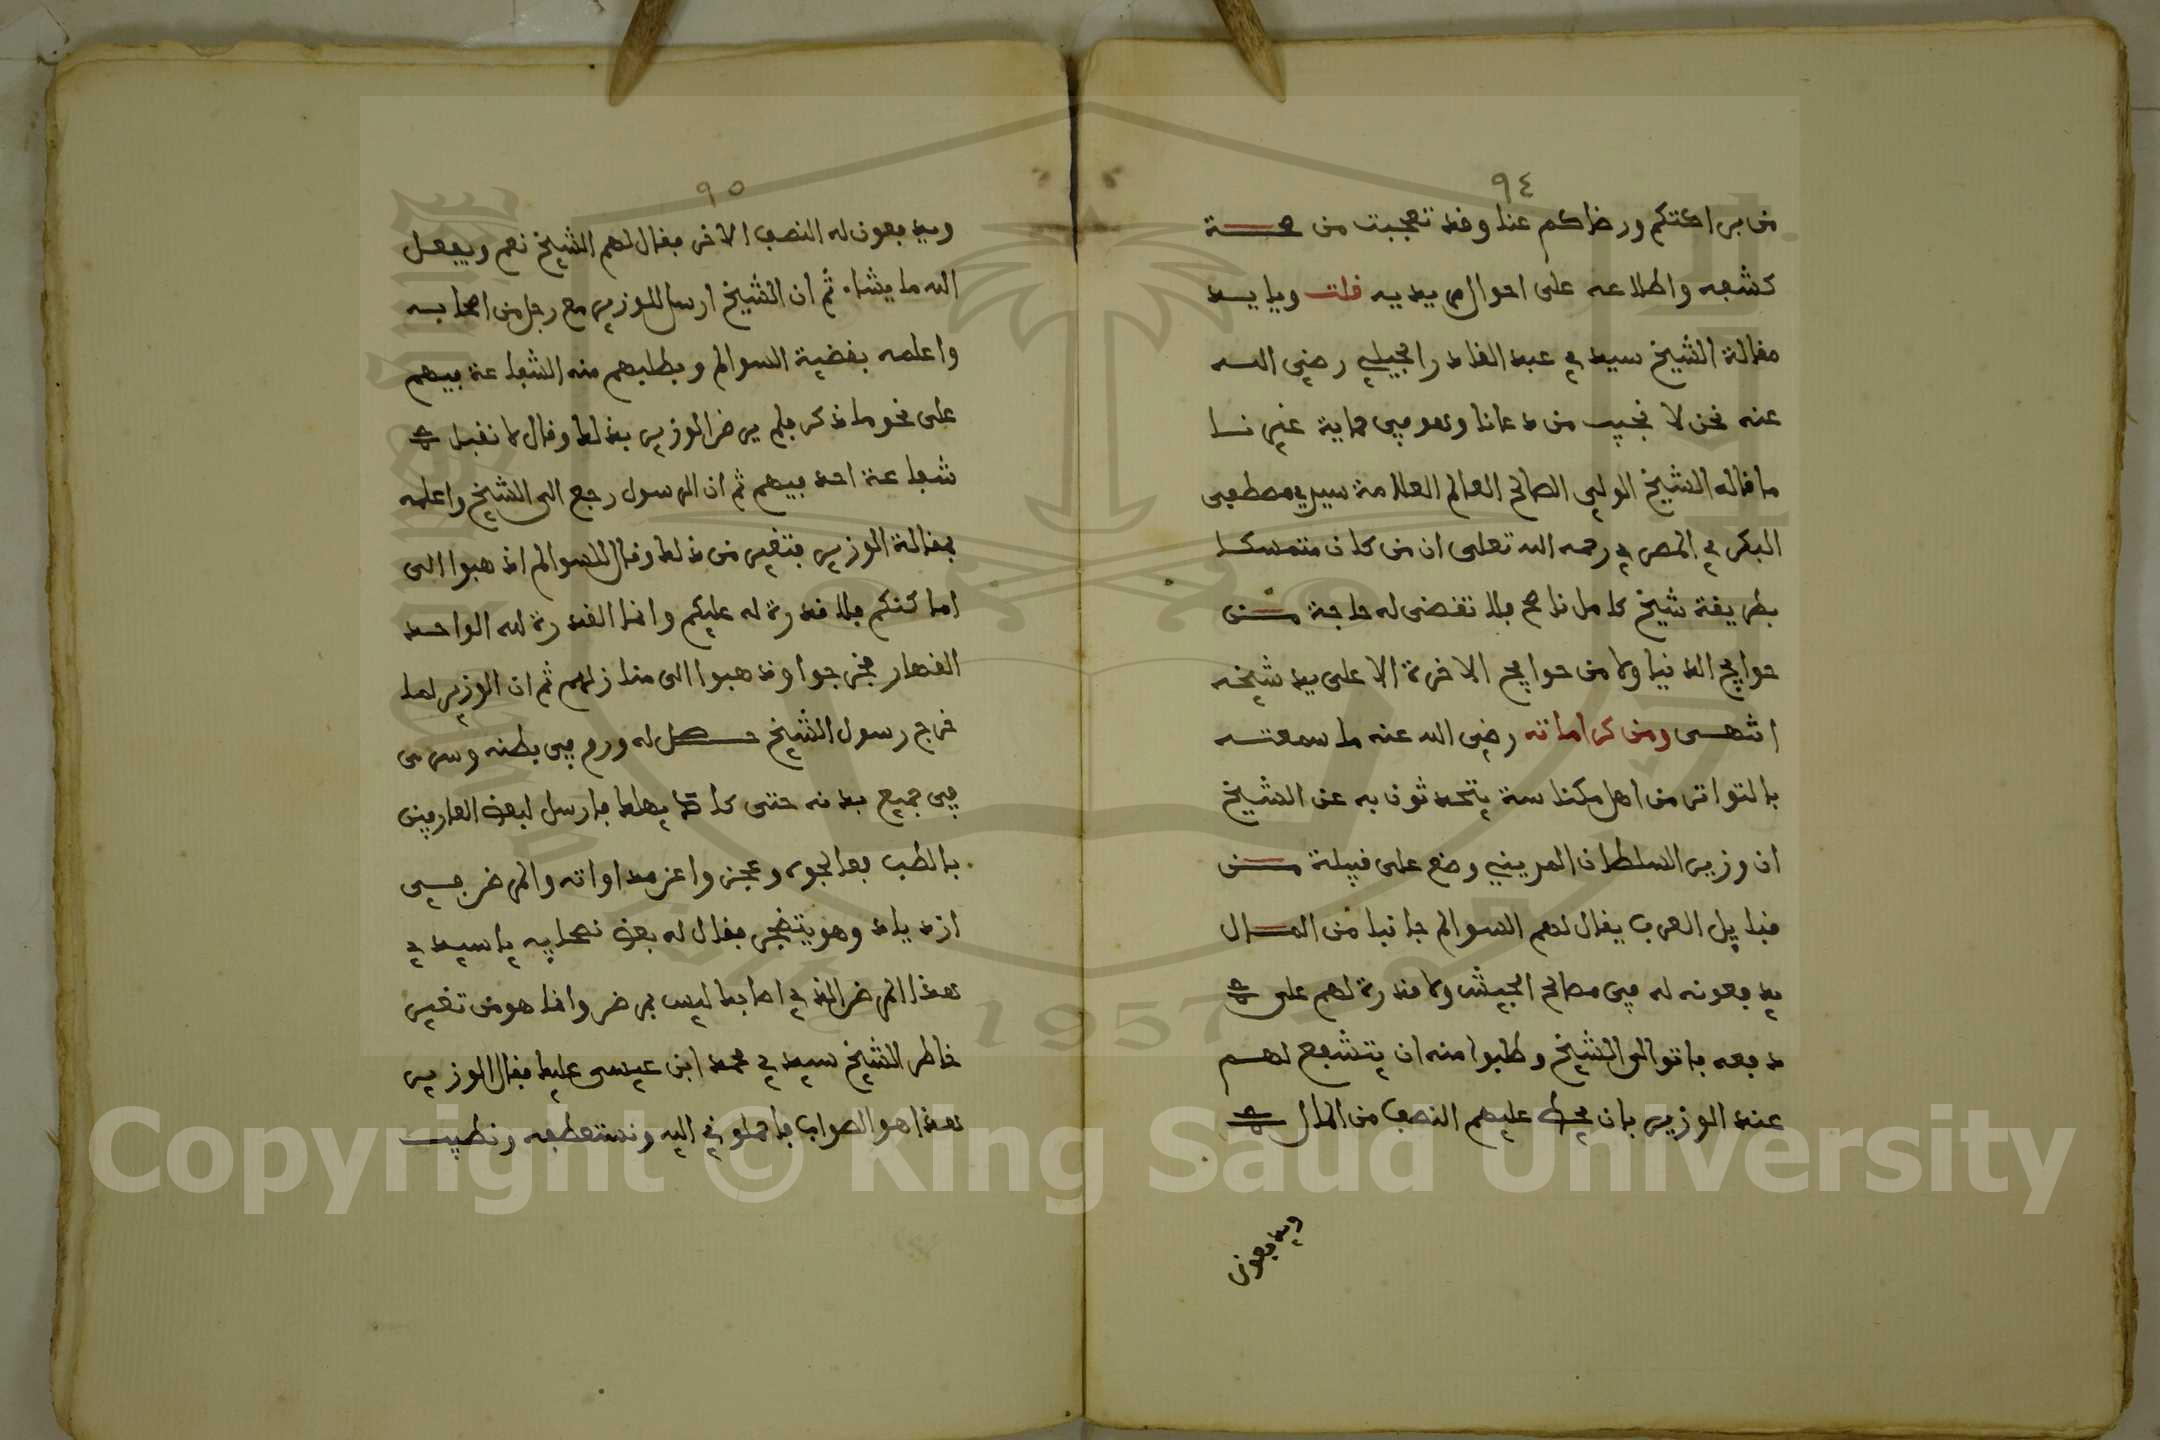 ٩٤
من بركتكم ورضاكم عنا وقد تعجبت من صحة
كشفه واطلاعه على احوال مريديه قلت ويايد
مقالة الشيخ سيدي عبد القادر الجيلي رضي الله
عنه نحن لا نجيب من دعانا وهو في حماية غيرنا
ما قاله الشيخ الولي الصالح العالم العلامة سيدي مصطفى
البكري المصري رحمه الله تعلى ان من كان متمسكا
بطريقة شيخ كامل ناصح فلا تقضى له حاجة من
حوايج الدنيا ولا من حوايج الاخرة الا على يد شيخه
انتهى ومن كراماته رضي الله عنه ما سمعته
بالتواتر من اهل مكناسة يتحدثون به عن الشيخ
ان وزير السلطان المريني وضع على قبيلة من
قبايل العرب يقال لهم السوالم جانبا من المال
يدفعونه له في مصالح الجيش ولا قدرة لهم على
دفعه فاتوا الى الشيخ وطلبوا منه ان يتشفع لهم
عند الوزير بان يحط عليهم النصف من المال
ويدفعون
٩٥
ويدفعون له النصف الاخر فقال لهم الشيخ نعم ويفعل
الله ما يشاء ثم ان الشيخ ارسل للوزير مع رجل من اصحابه
واعلمه بقضية السوالم وبطلبهم منه الشفاعة فيهم
على نحو ما ذكر فلم يرض الوزير بذلك وقال لا نقبل
شفاعة احد فيهم ثم ان الرسول رجع الى الشيخ واعلمه
بمقالة الوزير فتغير من ذلك وقال للسوالم اذهبوا الى
اماكنكم فلا قدرة له عليكم وانما القدرة لله الواحد
القهار فخرجوا وذهبوا الى منازلهم ثم ان الوزير لما
خرج رسول الشيخ حصل له ورم في بطنه وسرى
في جميع بدنه حتى كاد يهلك فارسل لبعض العارفين
بالطب فعالجوه وعجزوا عن مداواته والمرض في
ازدياد وهو يتضجر فقال له بعض نصحايه يا سيدي
هذا المرض الذي اصابك ليس بمرض وانما هو من تغير
خاطر الشيخ سيدي محمد ابن عيسى عليك فقال الوزير
هذا هو الصواب فاحملوني اليه ونستعطفه ونطيب
Copyright © King Saud University
1957